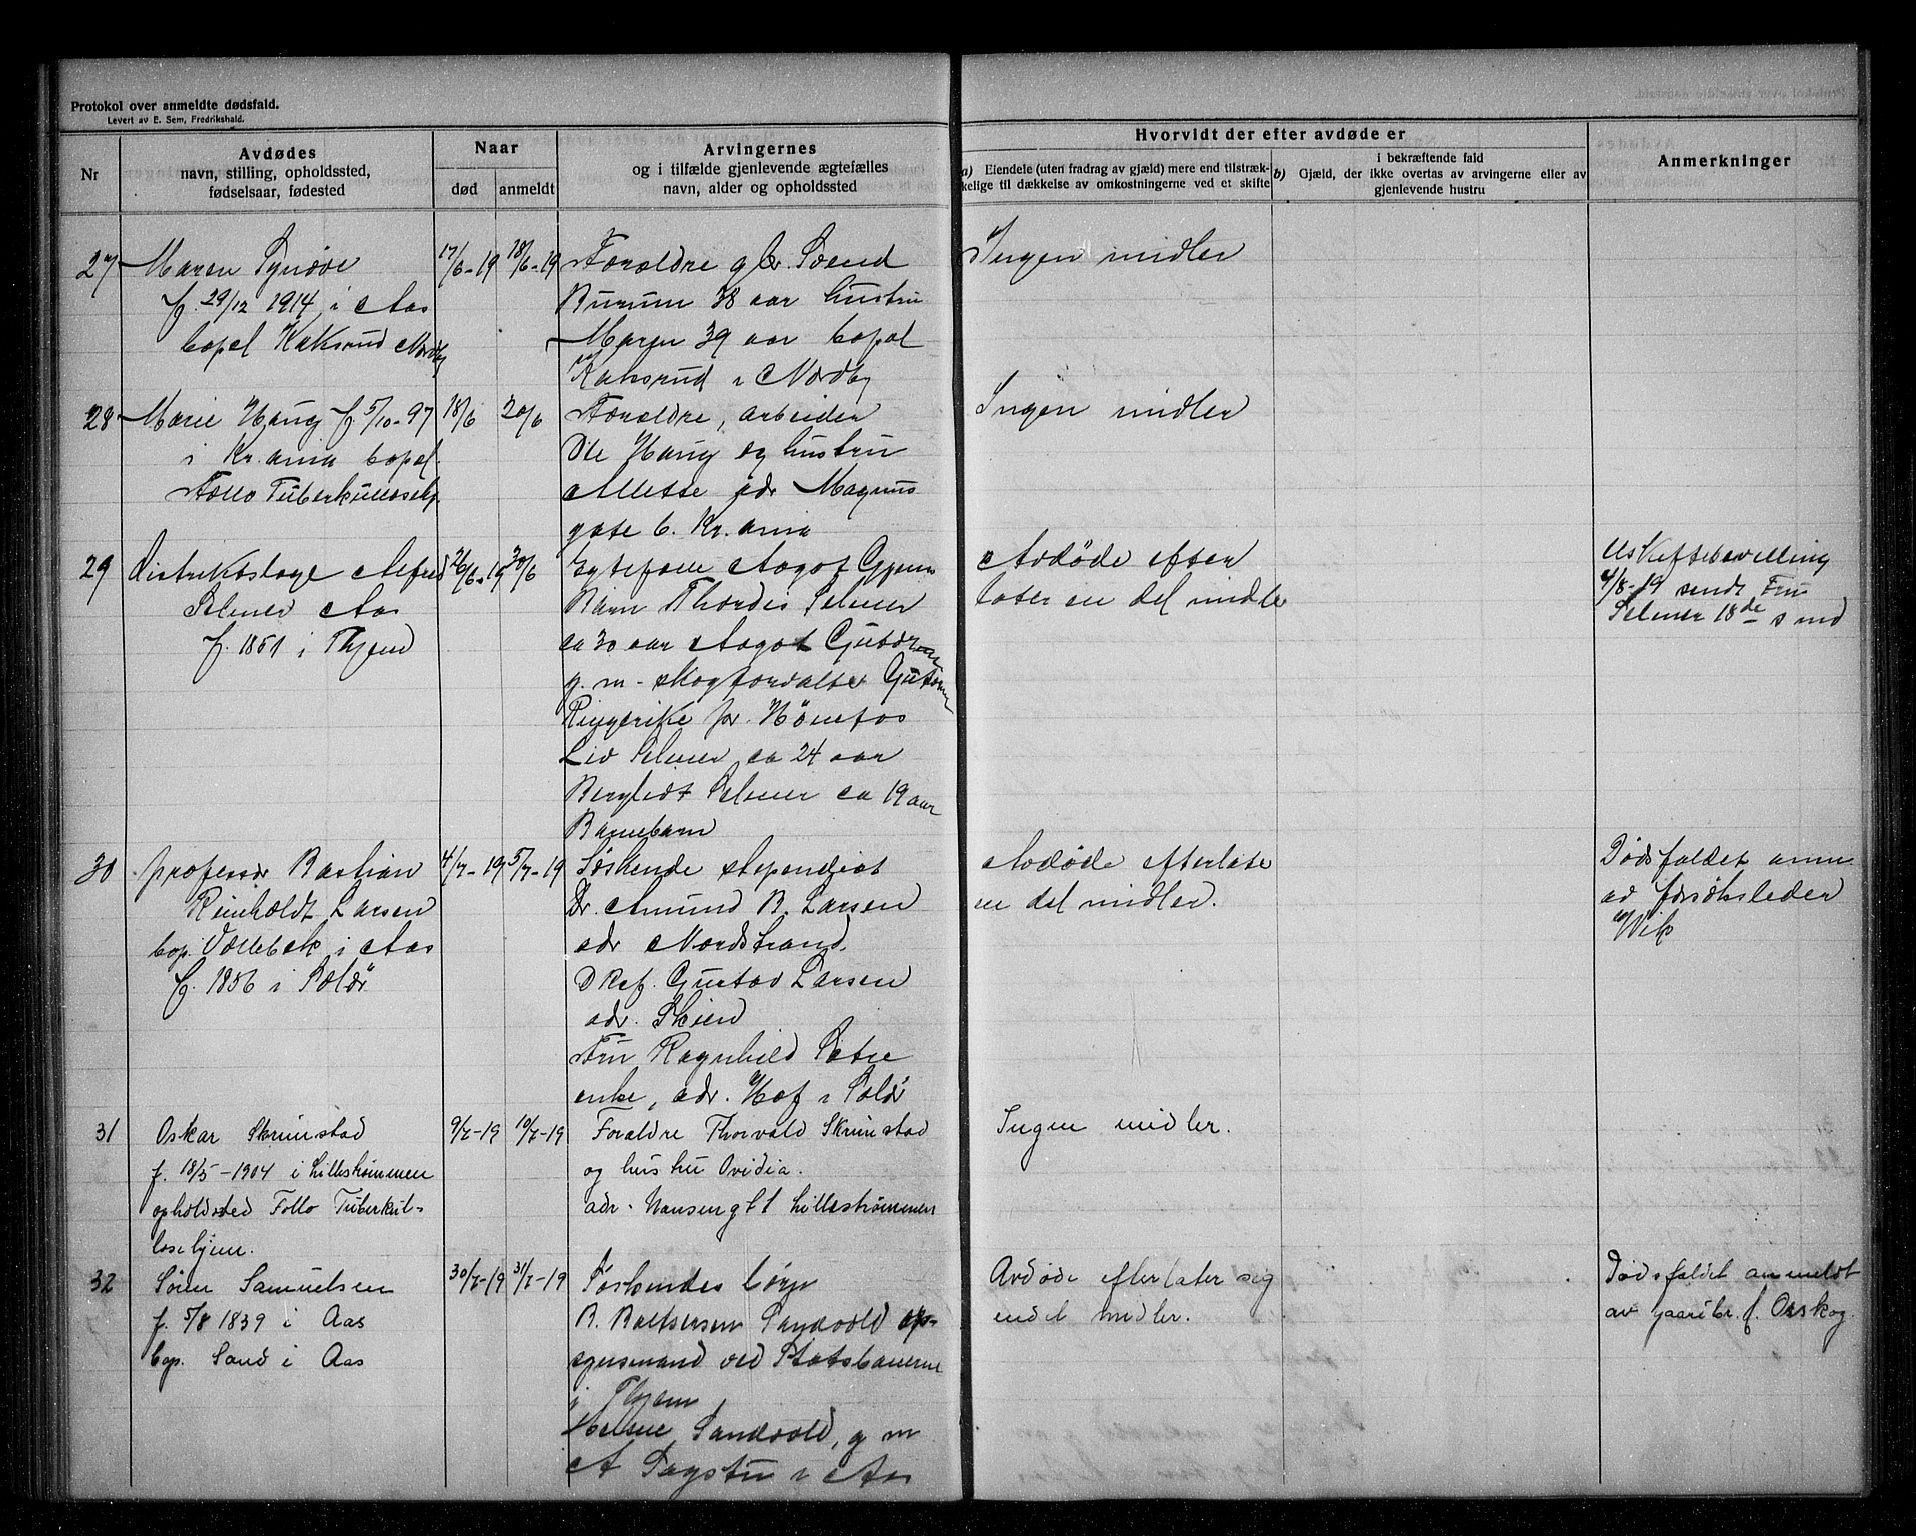 Protokol over anmeldte dødsfald.
Levert av E. Sem, Fredrikshald.
Nr
Avdødes
navn, stilling, opholdssted,
fødselsaar, fødested
Naar
død
anmeldt
Arvingernes
og i tilfælde gjenlevende ægtefælles
navn, alder og opholdssted
Hvorvidt der efter avdøde er
a) Eiendele (uten fradrag av gjæld) mere end tilstræk-
kelige til dækkelse av omkostningerne ved et skifte
i bekræftende fald
b) Gjæld, der ikke overtas av arvingerne eller av
gjenlevende hustru
Anmerkninger
27
Maren Synøve
f. 29/12 1914 i Aas
bopel Kaksrud Nordby
17/6-19
18/6-19
Forældre gbr. Svend
Burum 38 aar hustru
Maren 39 aar bopel
Kaksrud i Nordby
Ingen midler
28
Marie Haug f. 5/10-97
i Kr.ania bopel
Follo Tuberkulosehj.
18/6
20/6
Forældre, arbeider
Ole Haug og hustru
Alette adr Magnus
gate 6. Kr.ania
Ingen midler
29
Distriktslæge Alfred
Selmer Aas
f. 1851 i Thjem
26/6-19
30/6
Egtefæle Aagot Gjems
Barn Thordis Selmer
ca 30 aar Aagot Gutorm
g. m. skogforvalter Gutorm
Ringerike pr. Hønefos
Liv Selmer ca 24 aar
Bergliot Selmer ca 19 aar
Barnebarn
Avdøde efter
later en del midler
Uskiftebevilling
4/8-19 sendt Fru
Selmer 18de s md
30
professor Bastian
Reinholdt Larsen
bop. Vollebek i Aas
f. 1856 i Solør
4/7-19
5/7-19
Søskende stipendiat
Dr. Amund B. Larsen
adr Nordstrand.
Gustav Larsen
adr. Skien
Fru Ragnhild Sætre
enke, adr. Hof i Solør
Avdøde efterlate
en del midler.
Dødsfaldet anm
av forsøksleder
Wik
31
Oskar Skrimstad
f. 18/5-1904 i Lillestrømmen
opholdsted Follo Tuberkul-
losehjem.
9/7-19
10/7-19
Foraldre Thorvald Skrimstad
og hustru Ovidia.
adr. Hansengt 1 Lillestrømmen
Ingen midler.
32
Søren Samuelsen
f. 5/8 1839 i Aas
bop. Sand i Aas
30/7-19
31/7-19
Søskendes børn
B. Baltsersen Sandvold op-
synsmand ved Statsbanerne
i Thjem
Helene Sandvold, g m
A Sagstu i Aas
Avdøde efterlater sig
endel midler.
Dødsfaldet anmeldt
av gaardbr. f. Orskog.